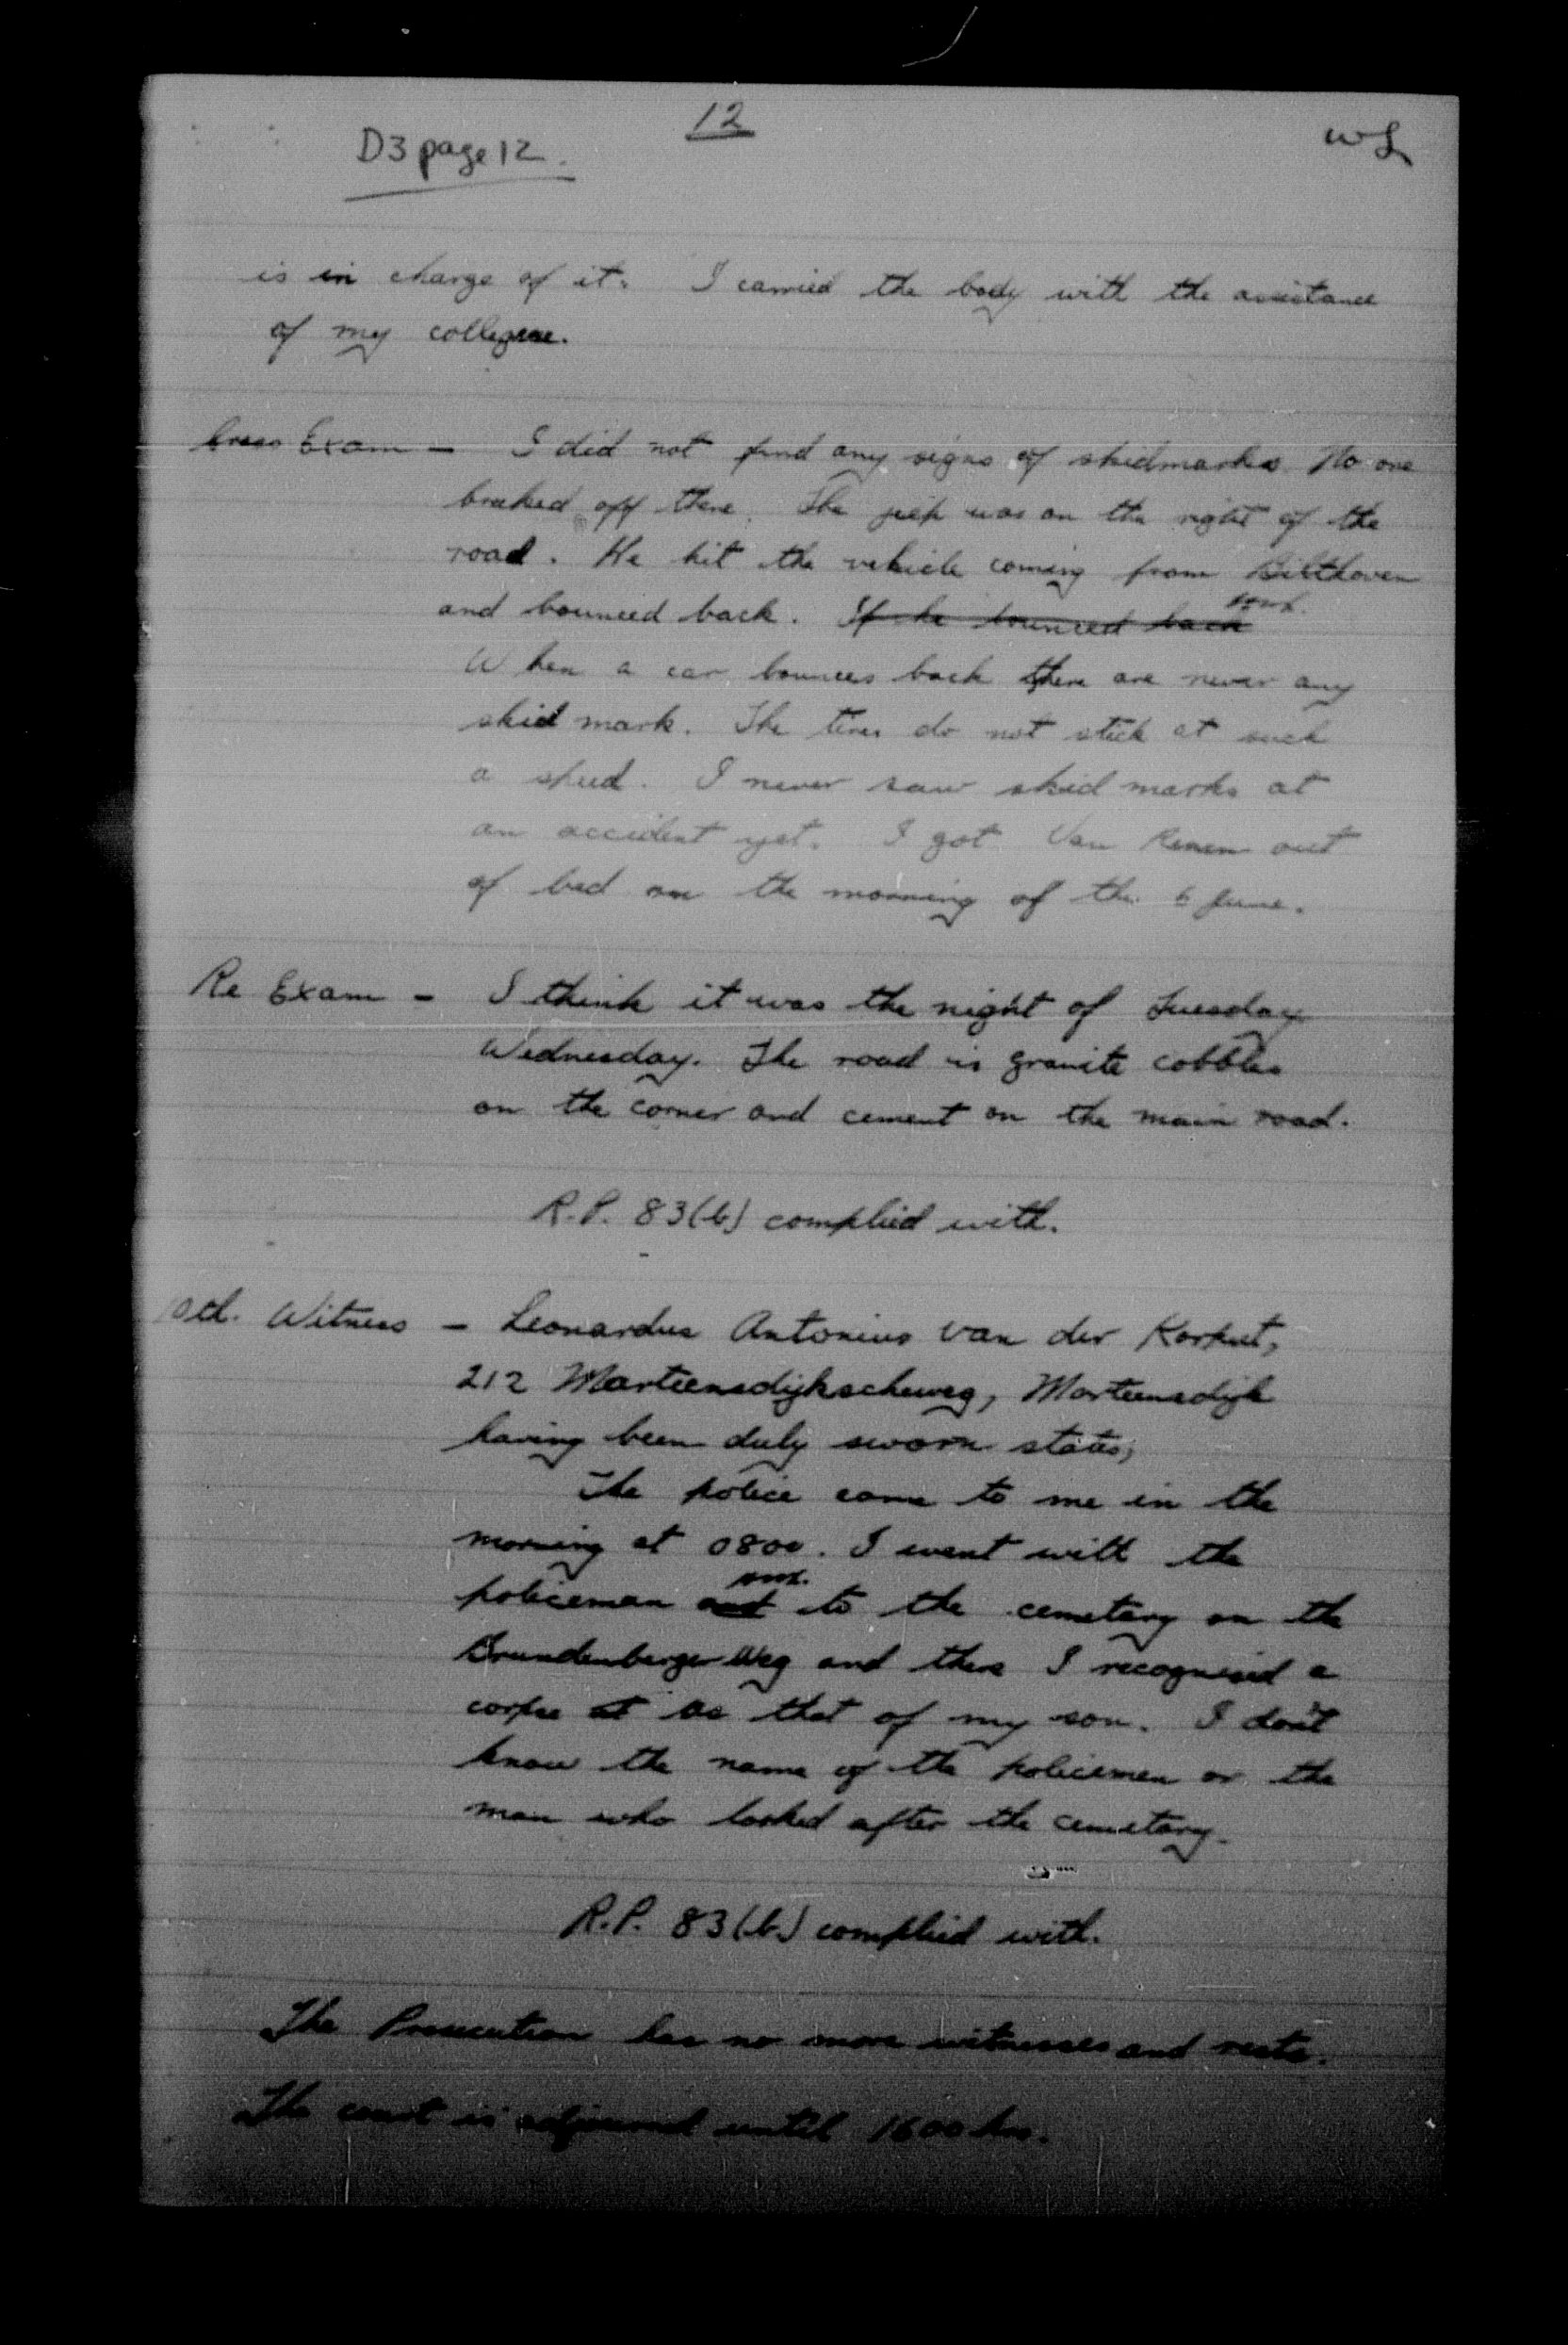 12
D3 page 12.
is in charge of it. I carried the body with the assistance
of my collegue.
Cross Exam - I did not find any signs of skidmarks. No one
braked off there. The jeep was on the right of the
road. He hit the vehicle coming from Bilthoven
and bounced back. If he bounced back
When a car bounces back there are never any
skid mark. The tires do not stick at such
a speed. I never saw skid marks at
an accident yet. I got Van out
of bed on the morning of the 6 June.
Re Exam - I think it was the night of Tuesday
Wednesday. The road is granite cobbles
on the corner and cement on the main road.
R.P. 83(b) complied with.
10th. Witness - Leonardus Antonius van der
212 Martensdijkscheweg, Martensdijk
having been duly sworn states;
The police came to me in the
morning at 0800. I went with the
policeman and to the cemetary on the
Weg and there I recognised a
corpse at as that of my son. I don't
know the name of the policemen or the
man who looked after the cemetary.
R.P. 83(b) complied with.
The Prosecution has no more witnesses and rests.
The court is adjourned until 1600 hrs.